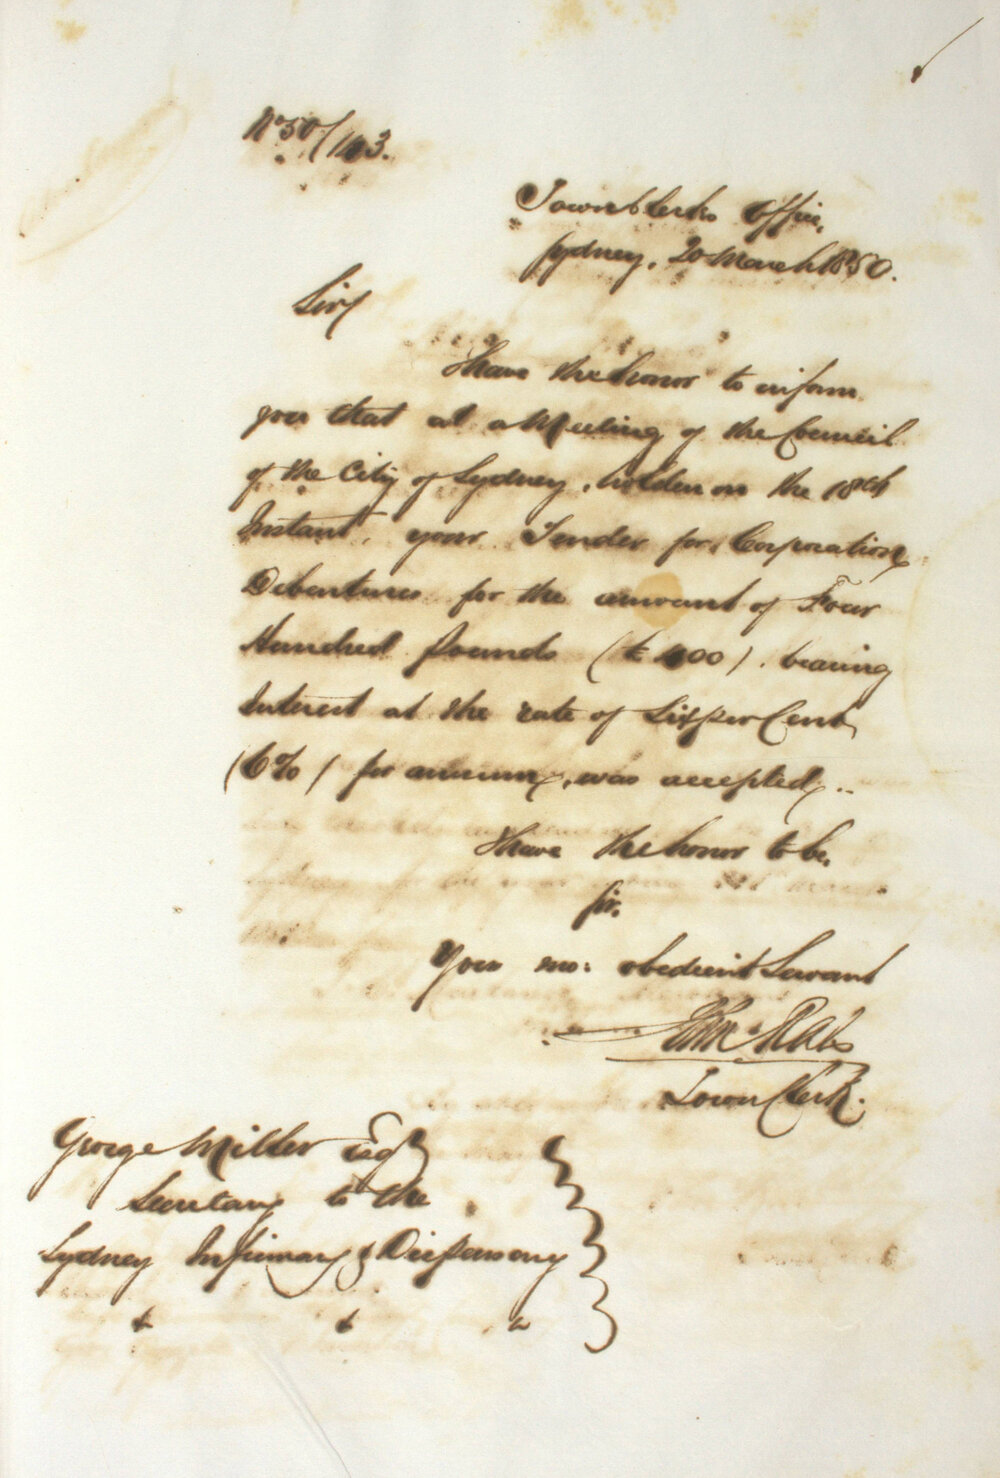 No 50/143.
Town Clerks Office,
Sydney, 20 March 1850.
Sir,
I have the honor to inform
you that at a Meeting of the Council
of the City of Sydney, holden on the 18th
Instant, your Tender for Corporation
Debentures for the amount of Four
Hundred pounds (£400). bearing
Interest at the rate of Six per Cent,
(6%) per annum, was accepted,..
I have the honor to be,
Sir,
Your mo: obedient Servant
John Rae
Town Clerk.
George Miller Esqr
Secretary to the
Sydney Infirmary & Dispensary